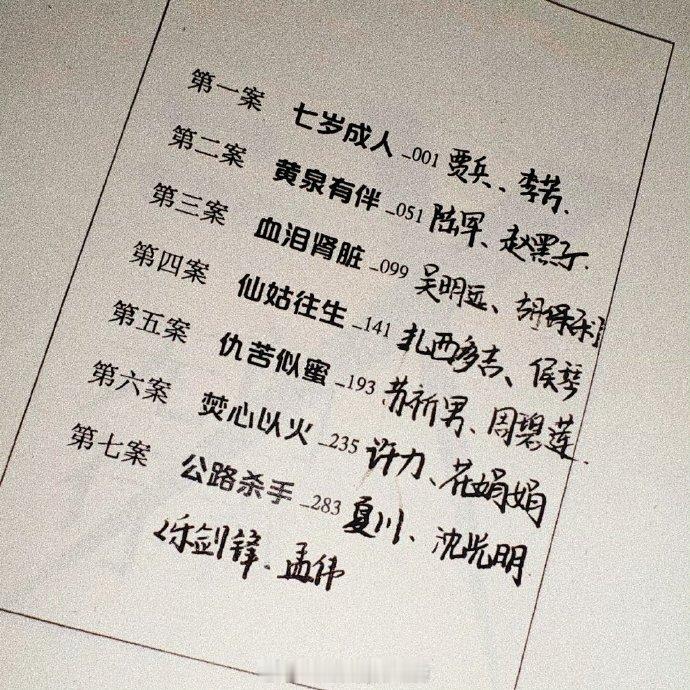 第一案 七岁成人_001 贾兵、李芳、
第二案 黄泉有伴_051 陆军、赵黑子
第三案 血泪肾脏_099 吴明远、
第四案 仙姑往生_141 扎西多吉、侯琴
第五案 仇苦似蜜_193 苏祈男、周碧莲、
第六案 焚心以火_235 许力、花娟娟
第七案 公路杀手_283 夏川、沈光明
乐剑锋、孟伟